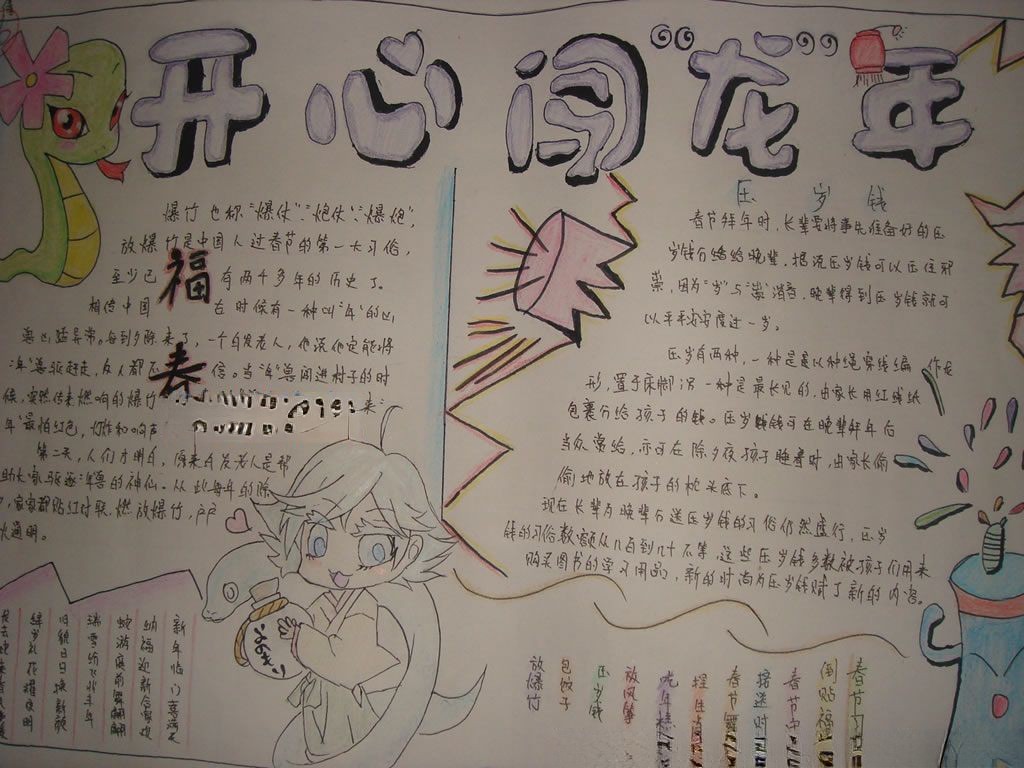 开心闯“龙”年
爆竹也称“爆仗”、“炮仗”、“爆炮”,
放爆竹是中国人过春节的第一大习俗,
至少已有两千多年的历史了。
福
相传中国 在时候有一种叫“年”的凶
兽凶猛异常。每到夕除来了,一个白发老人,他说他定能将
“年”兽驱赶走,众人都不信。当“年”兽闯进村子的时
春
候,突然传来燃响的爆竹 来“
年”最怕红色,
第二天,人们才明白,原来白发老人是帮
助大家驱逐“年”兽的神仙。从此每年的除
夕,家家都贴红对联、燃放爆竹,户户
火通明。
新年临门喜
纳福迎新
瑞雪纷飞兆丰年
旧貌日日换新颜
压岁钱
春节拜年时,长辈要将事先准备好的压
岁钱分给给晚辈,据说压岁钱可以压住邪
祟,因为“岁”与“祟”谐音,晚辈得到压岁钱就可
以平平安安度过一岁。
压岁有两种,一种是是以种绳穿线编 作龙
形,置于床脚 另一种是最长见的,由家长用红线纸
包裹分给孩子的钱。压岁钱钱可在晚辈拜年后
当众赏给,亦可在除夕夜孩子睡着时,由家长偷
偷地放在孩子的枕头底下。
现在长辈为晚辈分送压岁钱的习俗仍然盛行,压岁
钱的习俗数额从几百到几十不等,这些压岁钱多数被孩子们用来
购买图书的学习用品,新的时尚为压岁钱赋了新的内容。
春节习
倒贴福
春节
春节
放风筝
压岁钱
包饺子
放爆竹